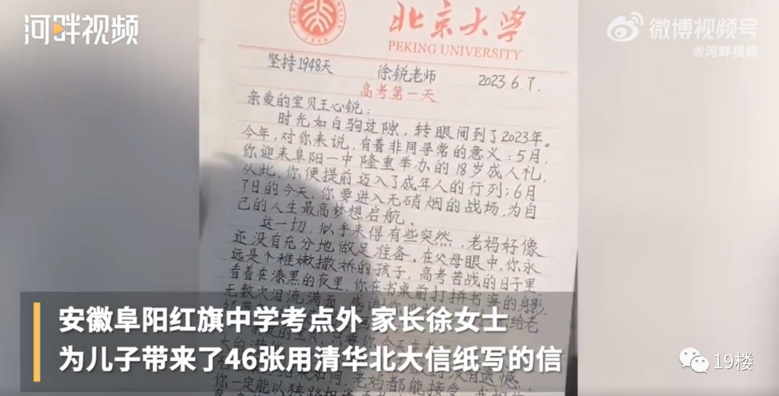 河畔视频
微博视频号
@河畔视频
北京大学
PEKING UNIVERSITY
坚持1948天 徐锐老师 2023.6.7.
高考第一天
亲爱的宝贝王心锐:
时光如白驹过隙,转眼间到了2023年。
今年,对你来说,有着非同寻常的意义:5月,
你迎来阜阳一中隆重举办的18岁成人礼,
从此,你便提前迈入了成年人的行列;6月
7日的今天,你要进入无硝烟的战场,为自
己的人生最高梦想启航。
这一切,似乎来得有些突然,老妈好像
还没有充分地做足准备。在父母眼中,你永
远是个稚嫩撒娇的孩子,高考苦战的日子里
看着在漆黑的夜里,你在书桌前打拼书海的身影,
无数次泪流满面
安徽阜阳红旗中学考点外 家长徐女士
为儿子带来了46张用清华北大信纸写的信
19楼